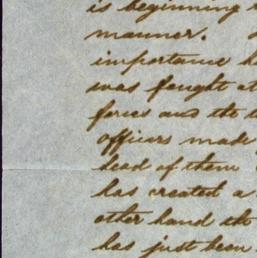 is beginning
manner.
importance
was fought at
forces and the
officers made
head of them
has created a
other hand the
has just been